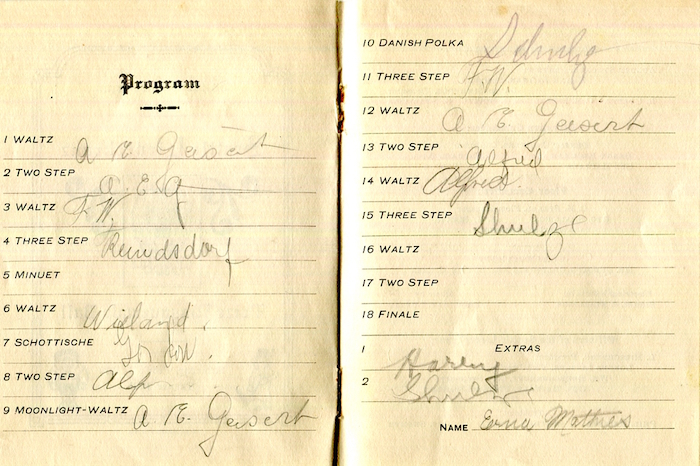 Program
1 WALTZ A E Geisert
2 TWO STEP A. E. G
3 WALTZ F. W.
4 THREE STEP Reindsdorf
5 MINUET
6 WALTZ Wieland.
7 SCHOTTISCHE Gordon.
8 TWO STEP Alf
9 MOONLIGHT-WALTZ A. E. Geisert
10 DANISH POLKA Schulze
11 THREE STEP F. W.
12 WALTZ A E. Geisert
13 TWO STEP Alfred
14 WALTZ Alfred.
15 THREE STEP Shulze
16 WALTZ
17 TWO STEP
18 FINALE
EXTRAS
1 Harry
2 Shulze
NAME Erna Mathies